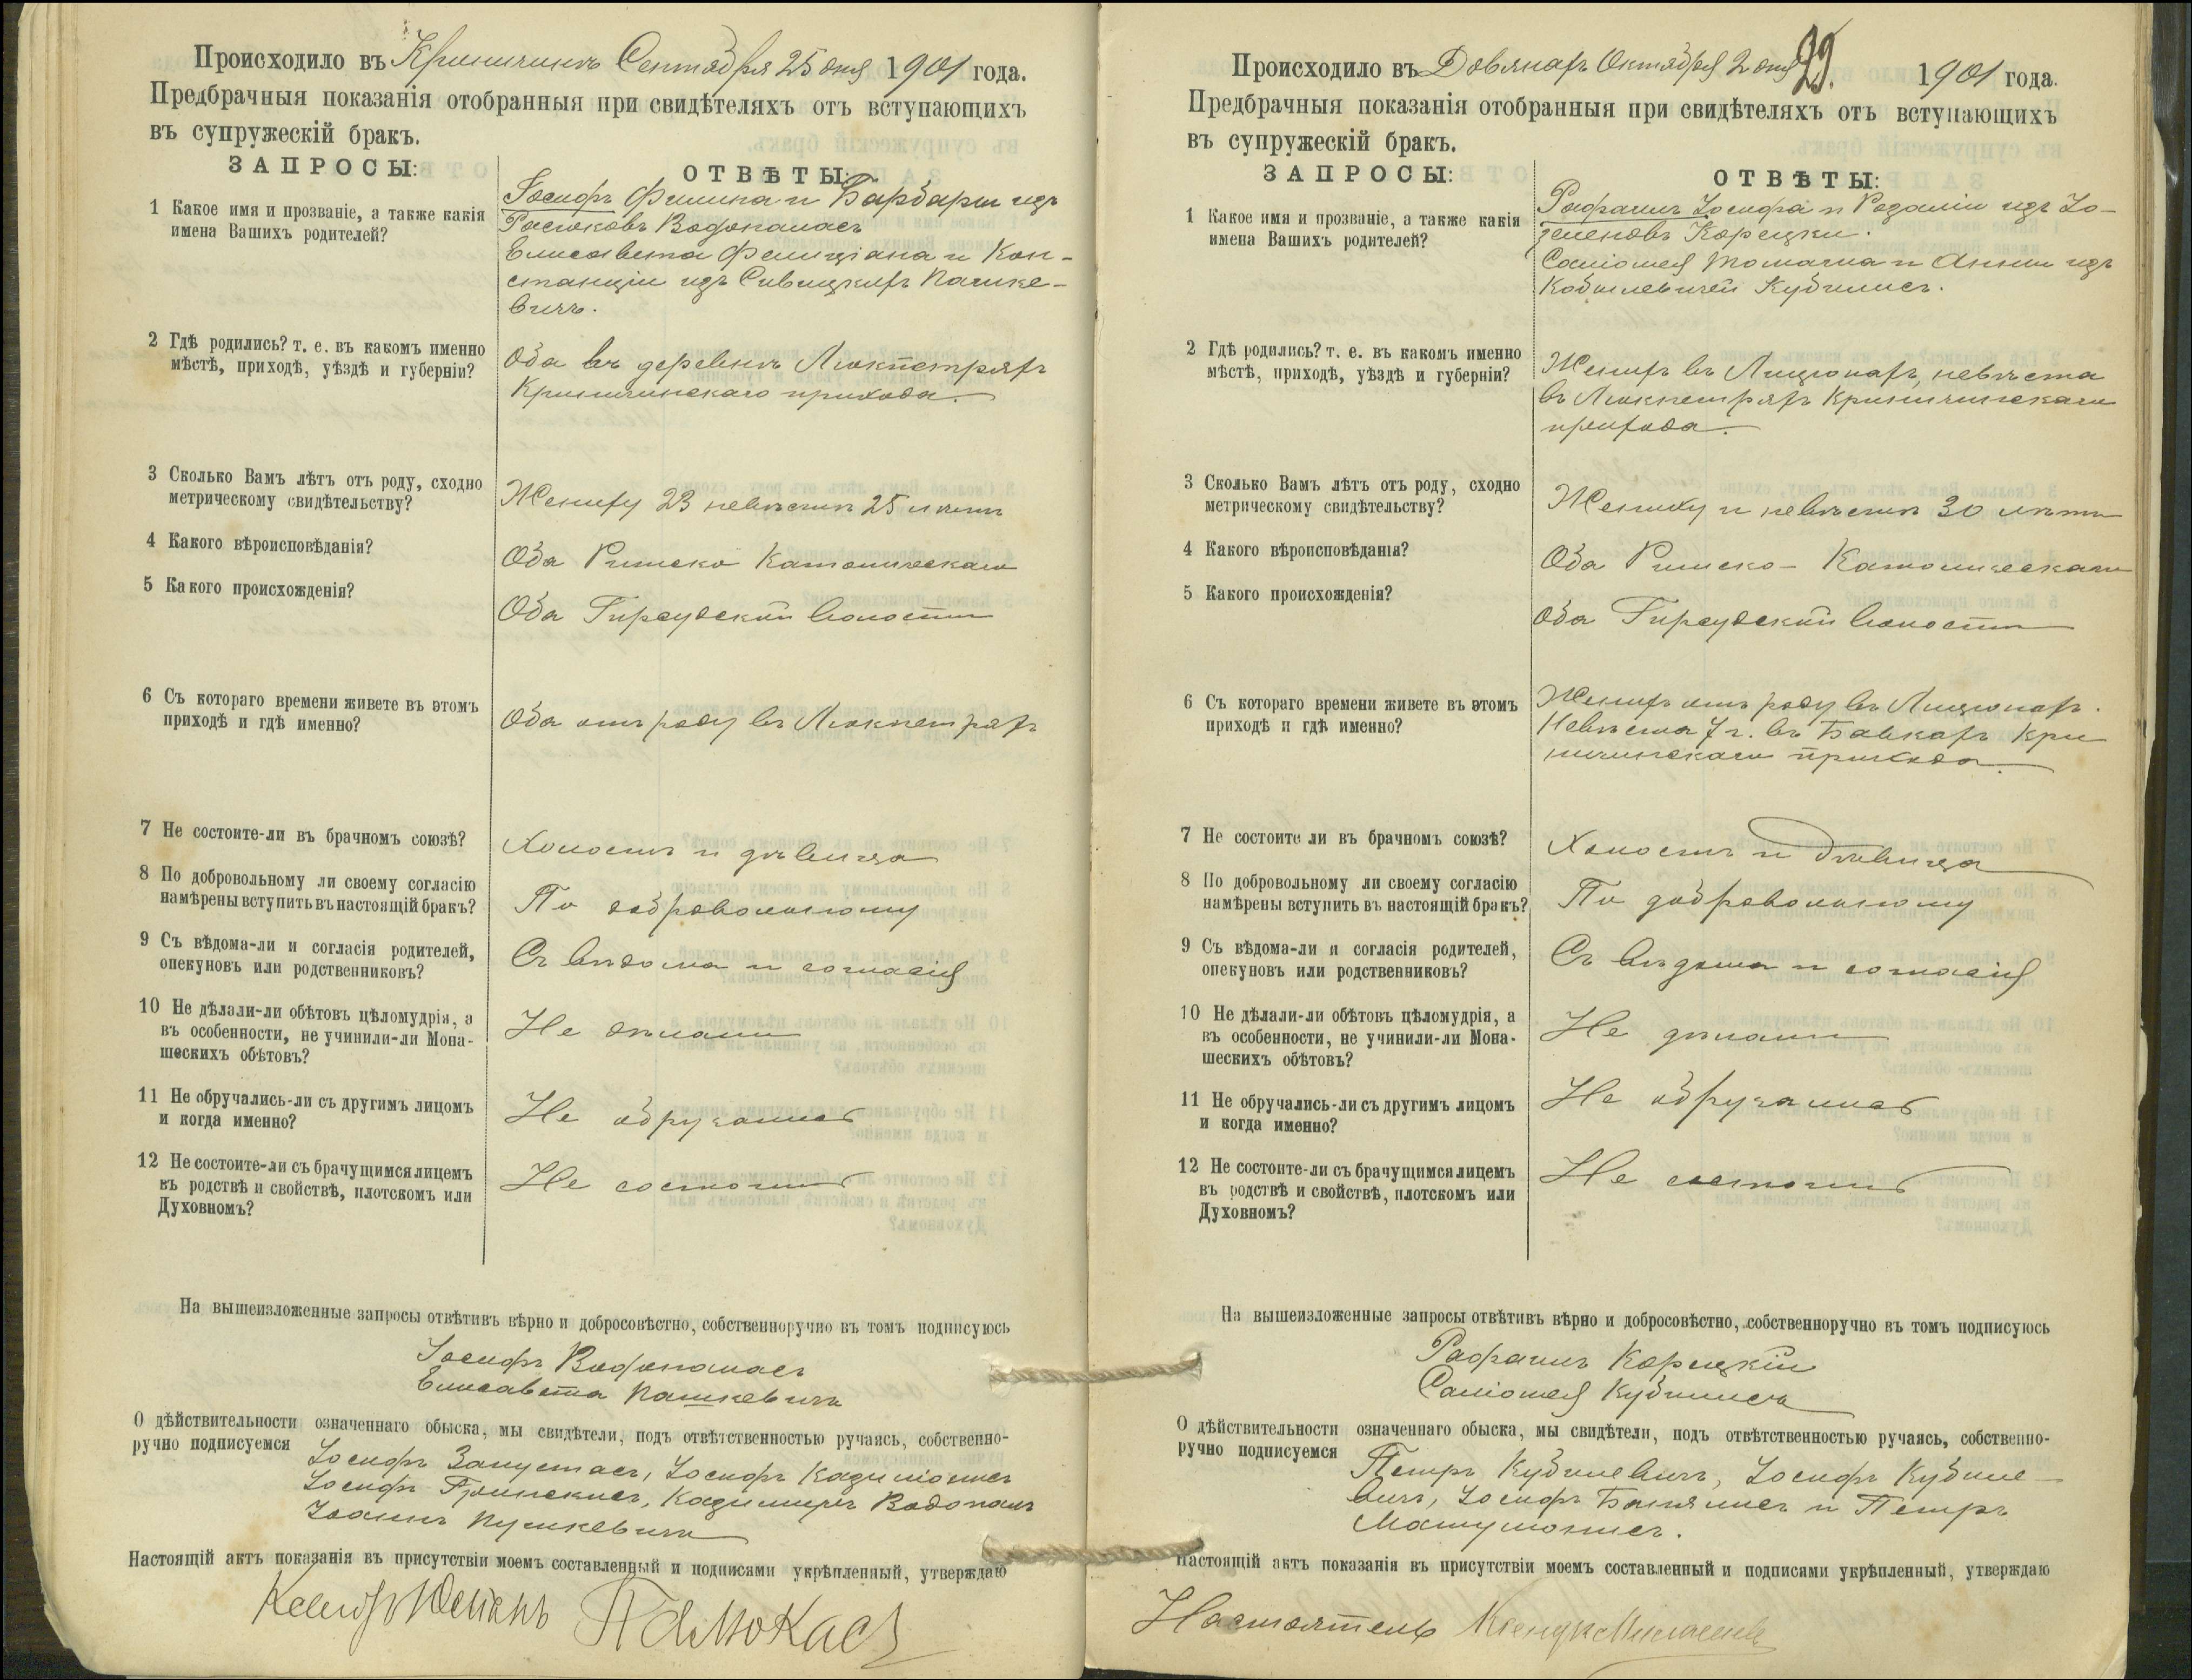 Происходило въ Криничинѣ Сентября 25 дня 1901 года.
Предбрачныя показанія отобранныя при свидѣтеляхъ отъ вступающихъ
въ супружескій бракъ.
ЗАПРОСЫ:
ОТВѢТЫ:
1 Какое имя и прозваніе, а также какія
имена Вашихъ родителей?
Іосифъ Филипа и Барбары изъ
Расюковъ Водопаласъ
Елисавета Фелиціана и Кон-
станціи изъ Сивицкихъ Пашке-
вичъ.
2 Гдѣ родились? т. е. въ какомъ именно
мѣстѣ, приходѣ, уѣздѣ и губерніи?
Оба въ деревнѣ Люкпетряхъ
Криничинскаго прихода.
3 Сколько Вамъ лѣтъ отъ роду, сходно
метрическому свидѣтельству?
Жениху 23 невѣстѣ 25 лѣтъ
4 Какого вѣроисповѣданія?
Оба Римско Католическаго
5 Какого происхожденія?
Оба Гирсудской волости
6 Съ котораго времени живете въ этомъ
приходѣ и гдѣ именно?
Оба отъ роду въ Люкпетряхъ
7 Не состоите-ли въ брачномъ союзѣ?
Холостъ и дѣвица
8 По добровольному ли своему согласію
намѣрены вступить въ настоящій бракъ?
По добровольному
9 Съ вѣдома-ли и согласія родителей,
опекуновъ или родственниковъ?
Съ вѣдома и согласія
10 Не дѣлали-ли обѣтовъ цѣломудрія, а
въ особенности, не учинили-ли Мона-
шескихъ обѣтовъ?
Не дѣлали
11 Не обручались-ли съ другимъ лицомъ
и когда именно?
Не обручались
12 Не состоите-ли съ брачущимся лицемъ
въ родствѣ и свойствѣ, плотскомъ или
Духовномъ?
Не состоимъ
На вышеизложенные запросы отвѣтивъ вѣрно и добросовѣстно, собственноручно въ томъ подписуюсь
Іосифъ Водопаласъ
Елисавета Пашкевичъ
О дѣйствительности означеннаго обыска, мы свидѣтели, подъ отвѣтственностью ручаясь, собственно-
ручно подписуемся
Іосифъ Запустасъ, Іосифъ
Іосифъ Казимиръ Водопалъ
Іоаннъ Пушкевичъ
Настоящій актъ показанія въ присутствіи моемъ составленный и подписями укрѣпленный, утверждаю
29.
Происходило въ Довянахъ Октября 2 дня 1901 года.
Предбрачныя показанія отобранныя при свидѣтеляхъ отъ вступающихъ
въ супружескій бракъ.
ЗАПРОСЫ:
ОТВѢТЫ:
1 Какое имя и прозваніе, а также какія
имена Вашихъ родителей?
Рафаилъ Іосифа и Розаліи изъ Іо-
зеленовъ Корецки.
Саліомея Томаша и Анны изъ
Кобылевичей Кубилисъ.
2 Гдѣ родились? т. е. въ какомъ именно
мѣстѣ, приходѣ, уѣздѣ и губерніи?
Женихъ въ Лиціонахъ, невѣста
въ Люкпетряхъ Криничинскаго
прихода.
3 Сколько Вамъ лѣтъ отъ роду, сходно
метрическому свидѣтельству?
Жениху и невѣстѣ 30 лѣтъ
4 Какого вѣроисповѣданія?
Оба Римско-Католическаго
5 Какого происхожденія?
Оба Гирсудской волости
6 Съ котораго времени живете въ этомъ
приходѣ и гдѣ именно?
Женихъ отъ роду въ Лиціонахъ.
Невѣста 7 г. въ Бавкахъ Кри
ничинскаго прихода.
7 Не состоите ли въ брачномъ союзѣ?
Холостъ и дѣвица
8 По добровольному ли своему согласію
намѣрены вступить въ настоящій бракъ?
По добровольному
9 Съ вѣдома-ли и согласія родителей,
опекуновъ или родственниковъ?
Съ вѣдома и согласія
10 Не дѣлали-ли обѣтовъ цѣломудрія, а
въ особенности, не учинили-ли Мона-
шескихъ обѣтовъ?
Не дѣлали
11 Не обручались-ли съ другимъ лицомъ
и когда именно?
Не обручались
12 Не состоите-ли съ брачущимся лицемъ
въ родствѣ и свойствѣ, плотскомъ или
Духовномъ?
Не состоимъ
На вышеизложенные запросы отвѣтивъ вѣрно и добросовѣстно, собственноручно въ томъ подписуюсь
Рафаилъ Корецкій
Саліомея Кубилисъ
О дѣйствительности означеннаго обыска, мы свидѣтели, подъ отвѣтственностью ручаясь, собственно-
ручно подписуемся
Петръ Кубилевичъ, Іосифъ Кубиле-
вичъ, Іосифъ и Петръ
Матулюнисъ.
Настоящій актъ показанія въ присутствіи моемъ составленный и подписями укрѣпленный, утверждаю
Настоятель